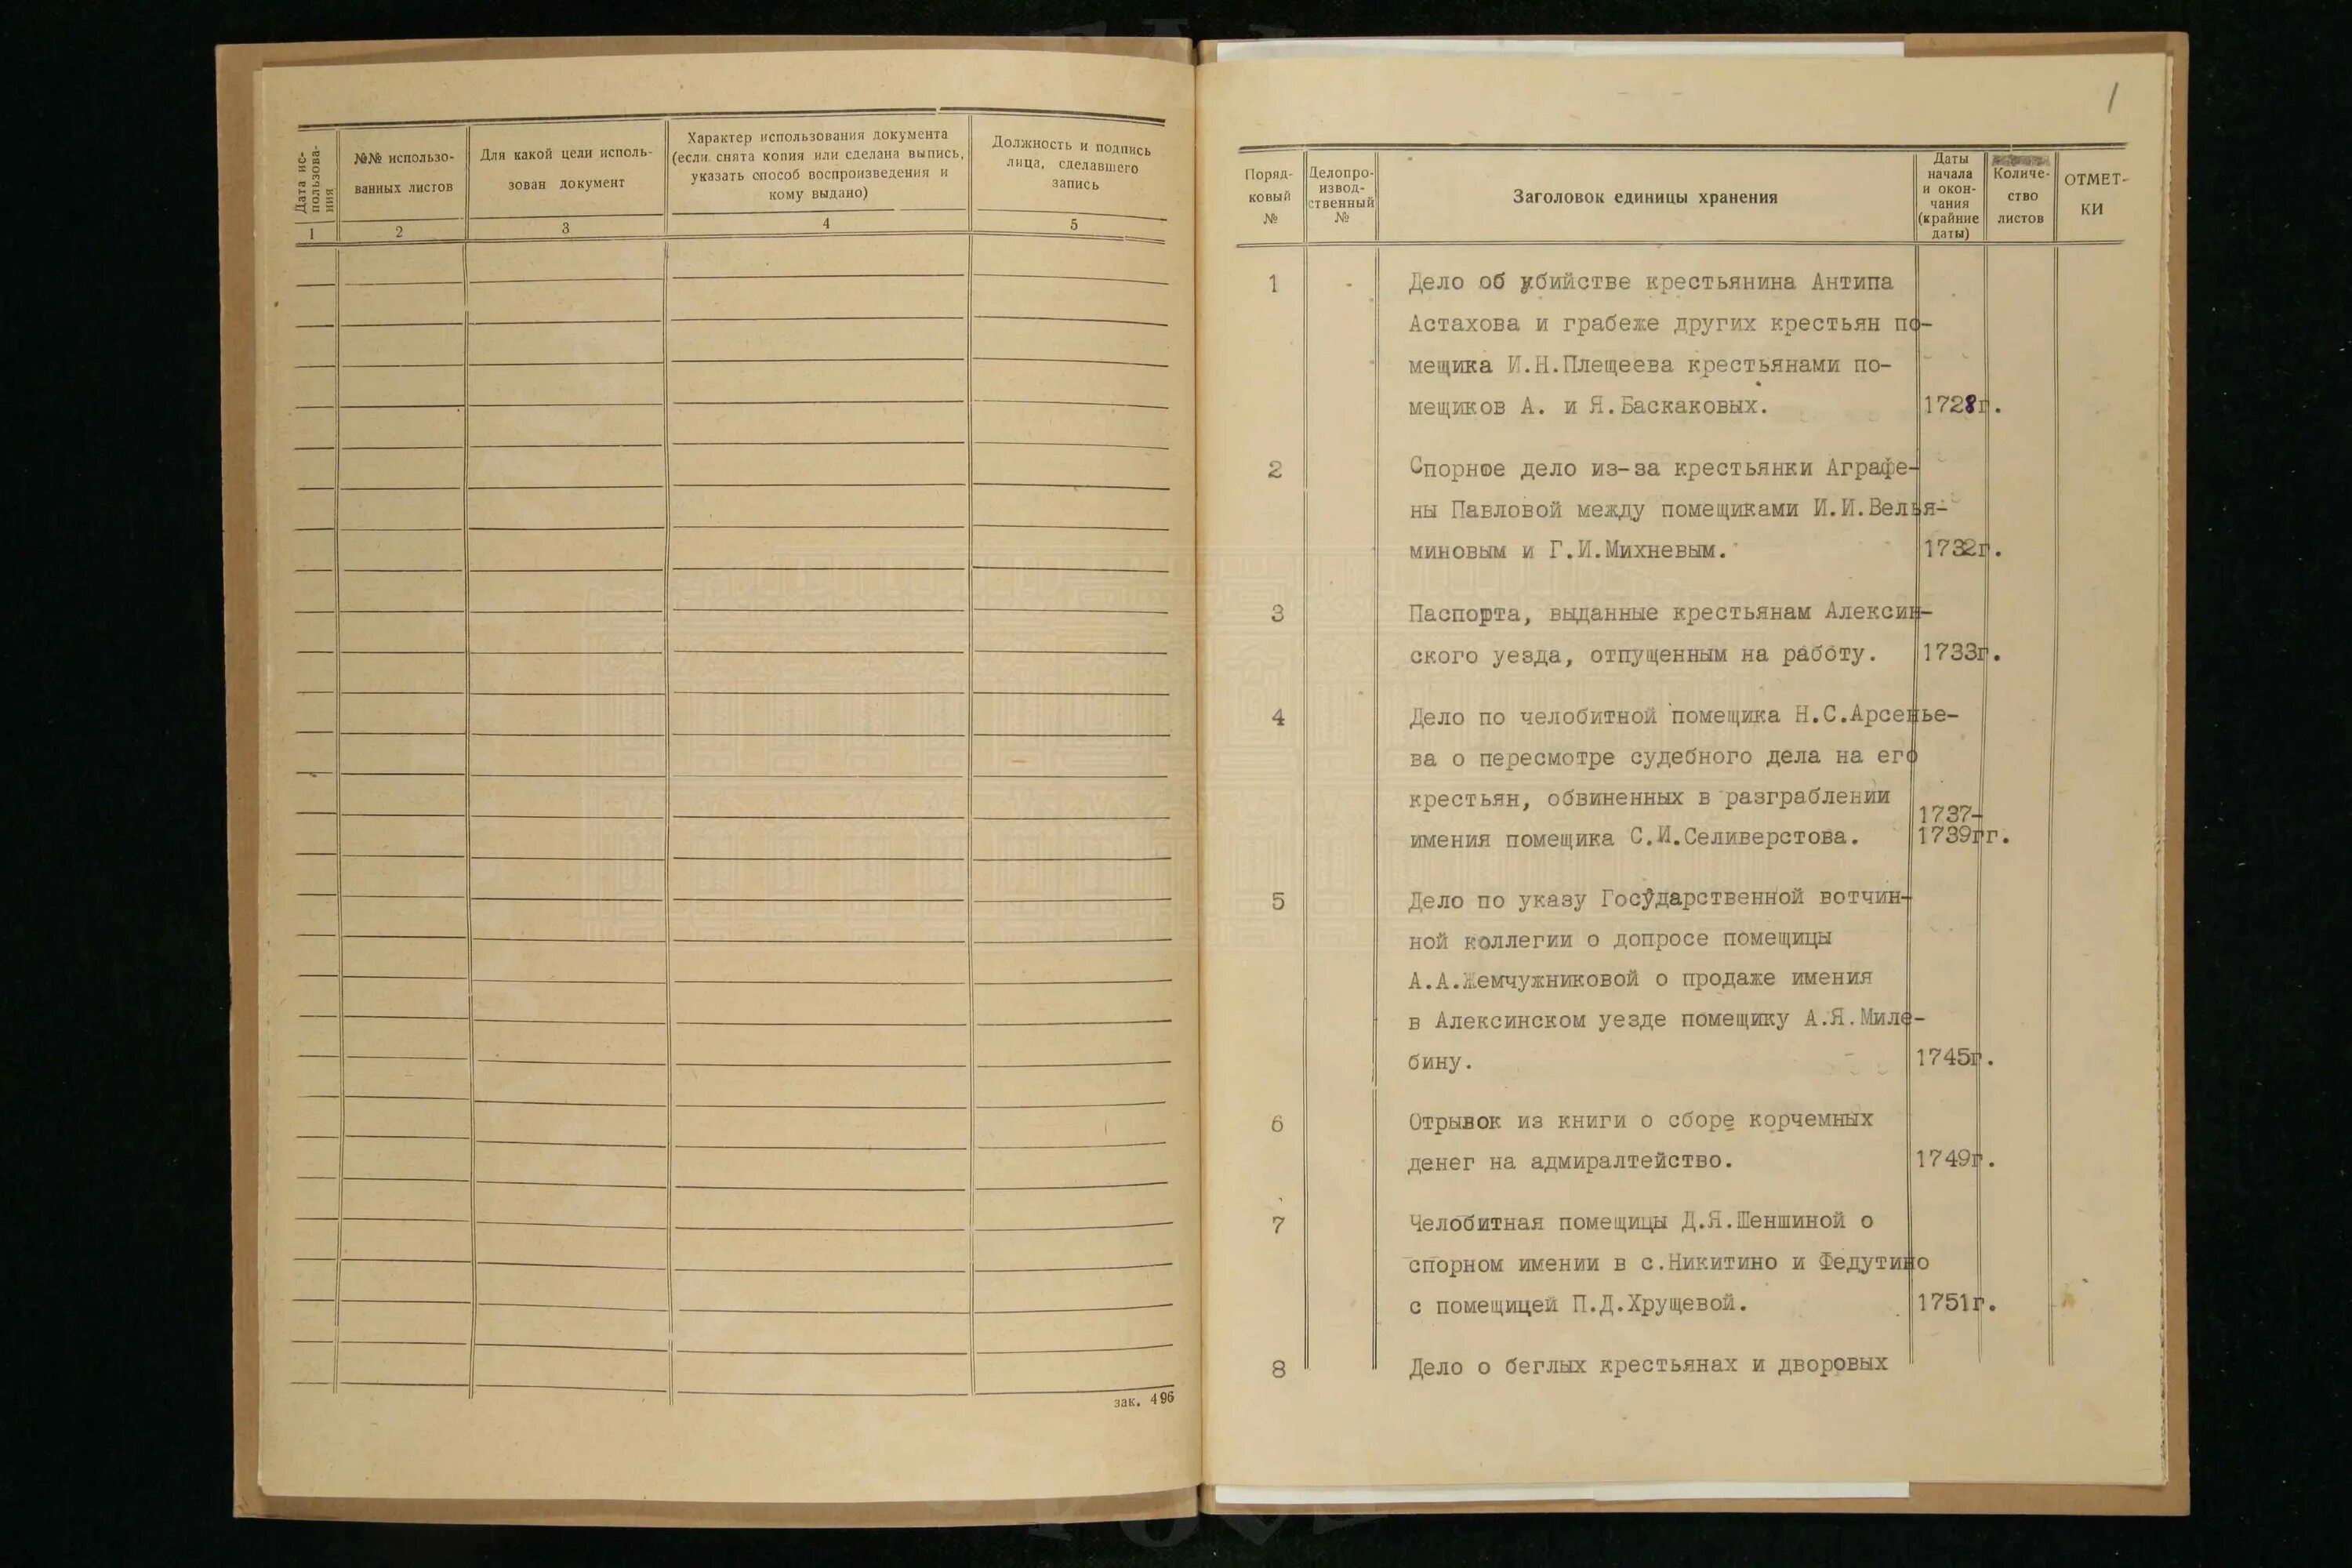 Дата ис-
пользова-
ния
№№ использо-
ванных листов
Для какой цели исполь-
зован документ
Характер использования документа
(если снята копия или сделана выпись,
указать способ воспроизведения и
кому выдано)
Должность и подпись
лица, сделавшего
запись
1 2 3 4 5
зак. 496
1
Поряд-
ковый
№
Делопро-
извод-
ственный
№
Заголовок единицы хранения
Даты
начала
и окон-
чания
(крайние
даты)
Количе-
ство
листов
ОТМЕТ-
КИ
1 Дело об убийстве крестьянина Антипа
Астахова и грабеже других крестьян по-
мещика И.Н.Плещеева крестьянами по-
мещиков А. и Я.Баскаковых. 1728г.
2 Спорное дело из-за крестьянки Аграфе-
ны Павловой между помещиками И.И.Велья-
миновым и Г.И.Михневым. 1732г.
3 Паспорта, выданные крестьянам Алексин-
ского уезда, отпущенным на работу. 1733г.
4 Дело по челобитной помещика Н.С.Арсенье-
ва о пересмотре судебного дела на его
крестьян, обвиненных в разграблении
имения помещика С.И.Селиверстова. 1737-
1739гг.
5 Дело по указу Государственной вотчин-
ной коллегии о допросе помещицы
А.А.Жемчужниковой о продаже имения
в Алексинском уезде помещику А.Я.Миле-
бину. 1745г.
6 Отрывок из книги о сборе корчемных
денег на адмиралтейство. 1749г.
7 Челобитная помещицы Д.Я.Шеншиной о
спорном имении в с.Никитино и Федутино
с помещицей П.Д.Хрущевой. 1751г.
8 Дело о беглых крестьянах и дворовых